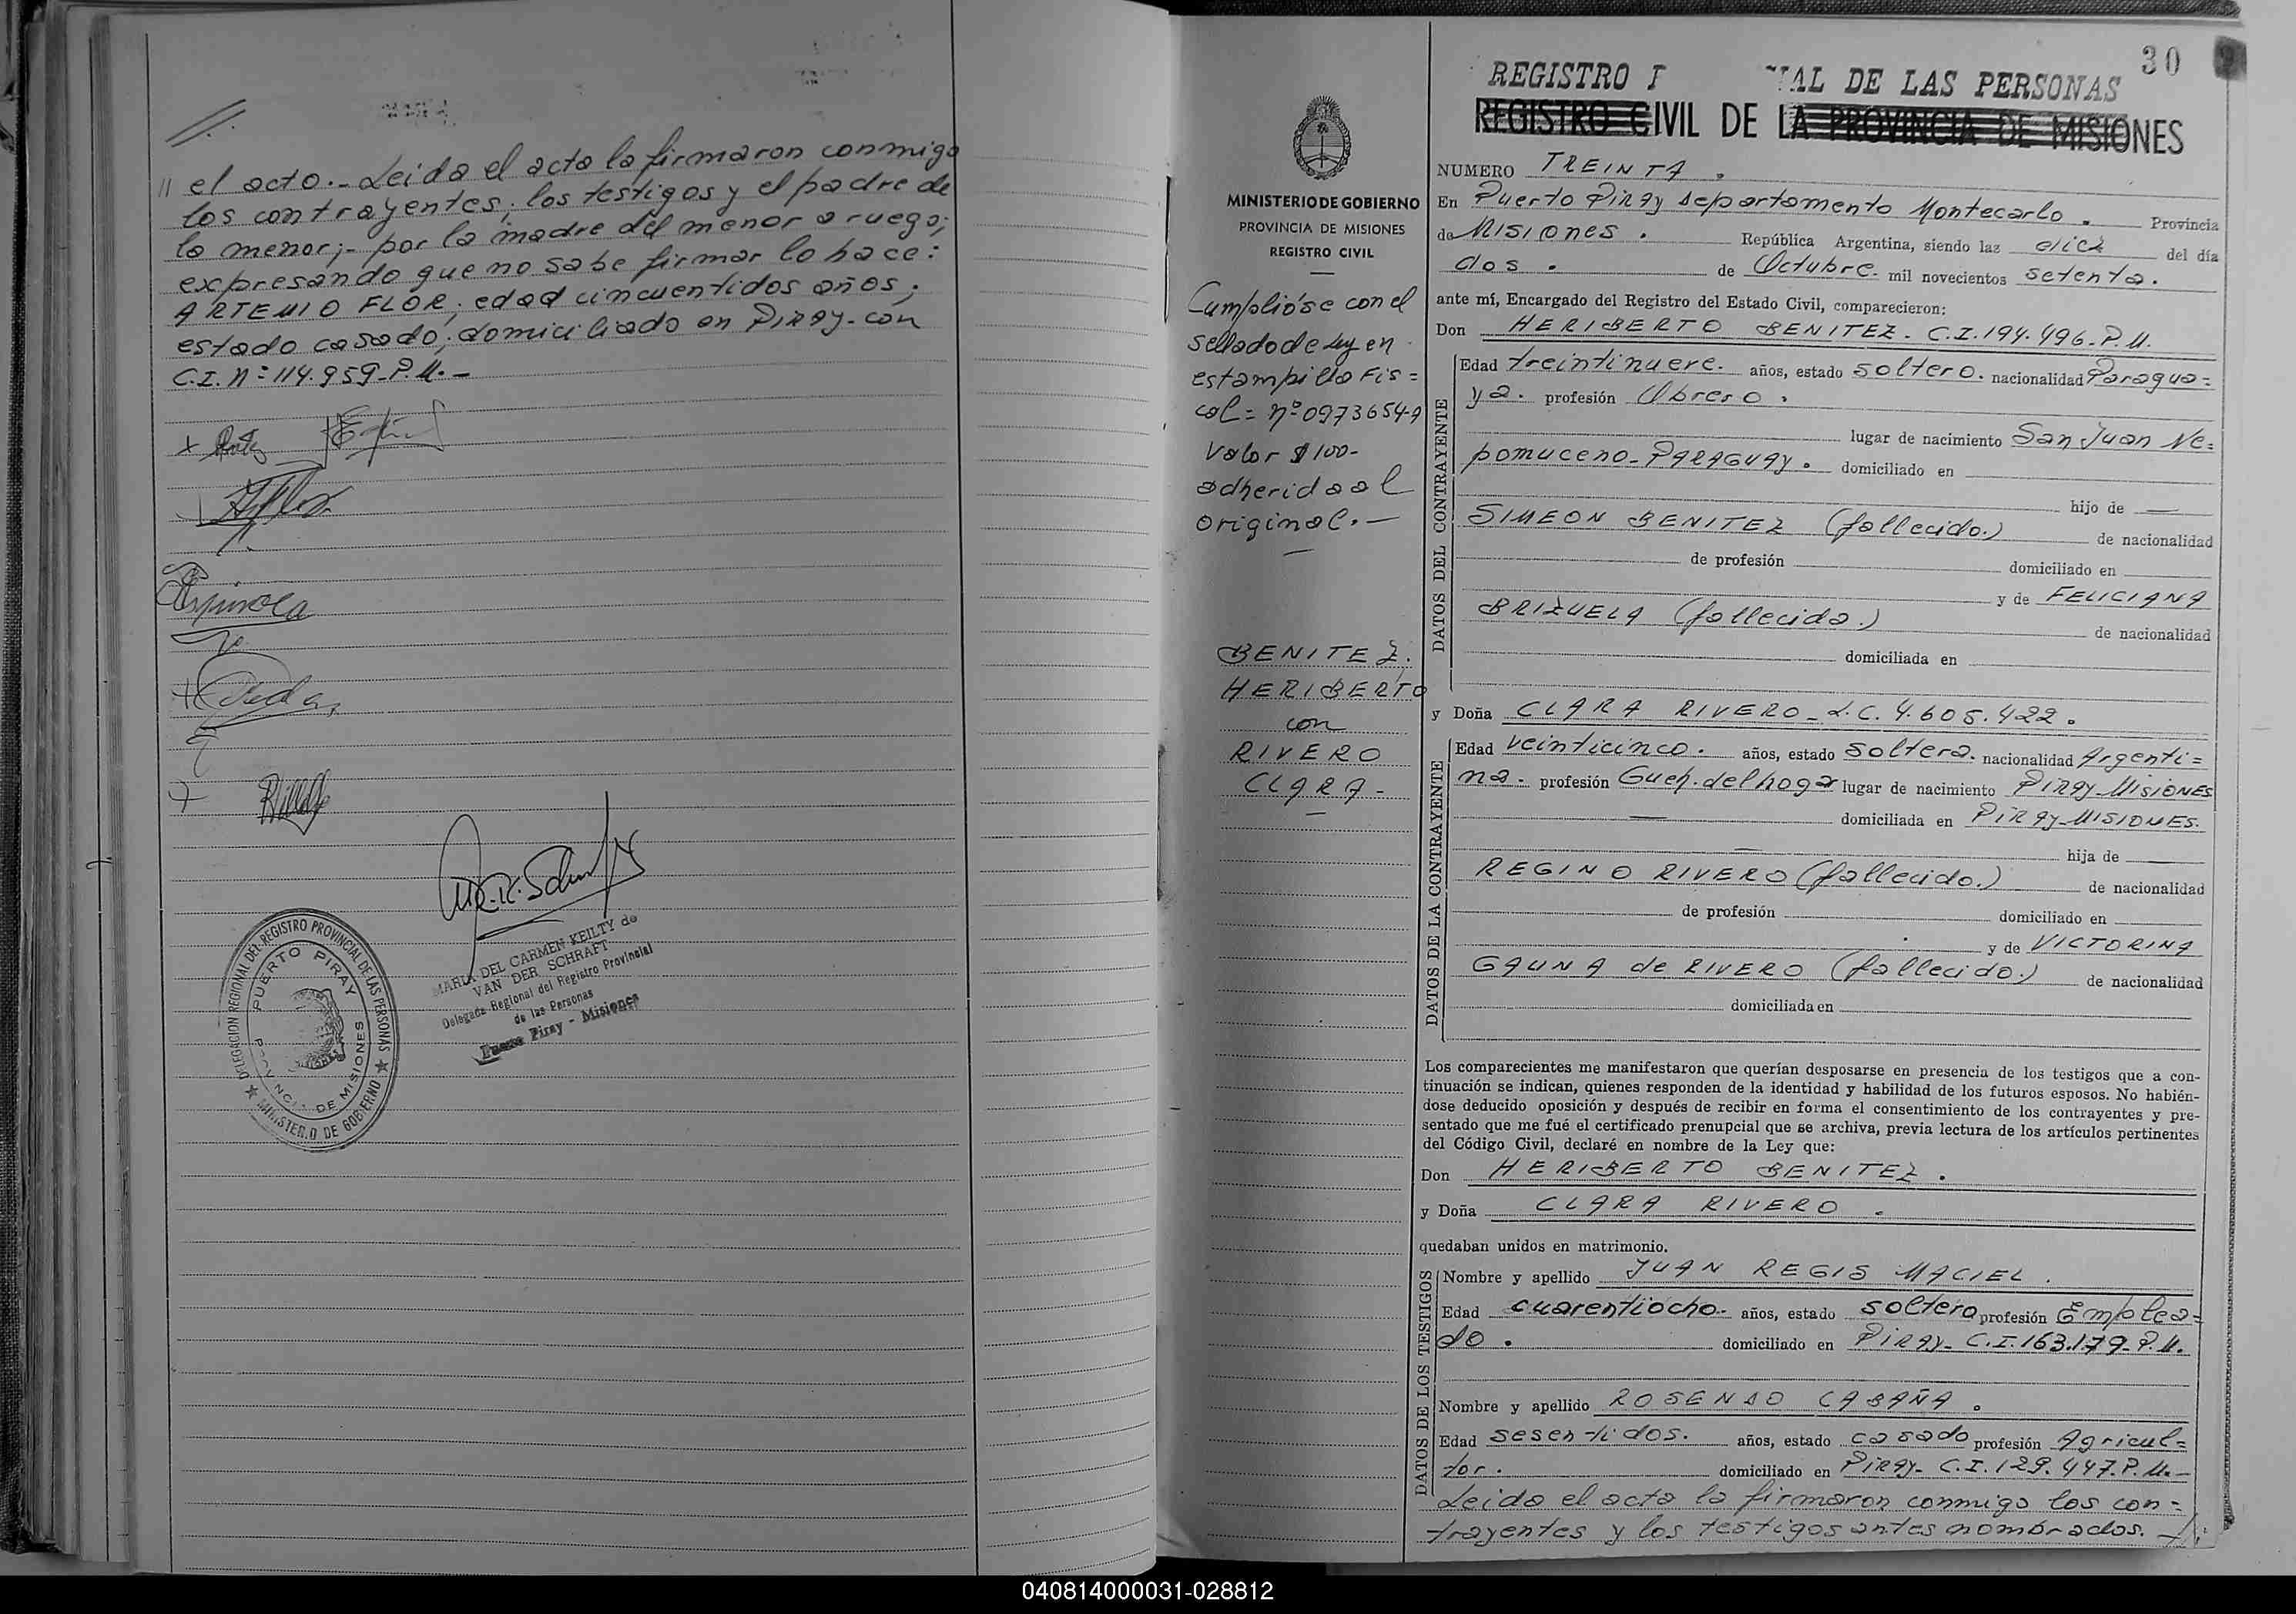 // el acto.- Leida el acta la firmaron conmigo
los contrayentes; los testigos y el padre de
la menor;- por la madre del menor a ruego;
expresando que no sabe firmar lo hace:
ARTEMIO FLOR; edad cincuentidos años;
estado casado; domiciliado en Piray-con
C.I. Nº 114.959-P.M.-
MARIA DEL CARMEN KEILTY de
VAN DER SCHRAFT
Delegada Regional del Registro Provincial
de las Personas
Puerto Piray - Misiones
DELEGACION REGIONAL DEL REGISTRO PROVINCIAL DE LAS PERSONAS
MINISTERIO DE GOBIERNO
PUERTO PIRAY
DE MISIONES
30
REGISTRO DE LAS PERSONAS
REGISTRO CIVIL DE LA PROVINCIA DE MISIONES
MINISTERIO DE GOBIERNO
PROVINCIA DE MISIONES
REGISTRO CIVIL
Cumplióse con el
sellado de Ley en
estampilla Fis=
cal= nº 0973654A
Valor $ 100-
adherida al
original.-
BENITEZ.
HERIBERTO
con
RIVERO
CLARA-
NUMERO TREINTA.
En Puerto Piray departamento Montecarlo. Provincia
de Misiones. República Argentina, siendo las diez del día
dos. de Octubre. mil novecientos setenta.
ante mí, Encargado del Registro del Estado Civil, comparecieron:
Don HERIBERTO BENITEZ. C.I. 194.496-P.M.
DATOS DEL CONTRAYENTE
Edad treintinueve. años, estado soltero. nacionalidad Paragua=
ya. profesión Obrero.
lugar de nacimiento San Juan Ne=
pomuceno-PARAGUAY. domiciliado en
hijo de —
SIMEON BENITEZ (fallecido.) de nacionalidad
de profesión domiciliado en
y de FELICIANA
BRIZUELA (fallecida.) de nacionalidad
domiciliada en
y Doña CLARA RIVERO-L.C. 4.605.422.
DATOS DE LA CONTRAYENTE
Edad veinticinco. años, estado soltera. nacionalidad Argenti=
na. profesión Queh. del hogar lugar de nacimiento PIRAY-MISIONES
— domiciliada en PIRAY-MISIONES.
— hija de —
REGINO RIVERO (fallecido.) de nacionalidad
de profesión domiciliado en
y de VICTORINA
GAUNA de RIVERO (fallecido.) de nacionalidad
domiciliada en
Los comparecientes me manifestaron que querían desposarse en presencia de los testigos que a con-
tinuación se indican, quienes responden de la identidad y habilidad de los futuros esposos. No habién-
dose deducido oposición y después de recibir en forma el consentimiento de los contrayentes y pre-
sentado que me fué el certificado prenupcial que se archiva, previa lectura de los artículos pertinentes
del Código Civil, declaré en nombre de la Ley que:
Don HERIBERTO BENITEZ.
y Doña CLARA RIVERO.
quedaban unidos en matrimonio.
DATOS DE LOS TESTIGOS
Nombre y apellido JUAN REGIS MACIEL.
Edad cuarentiocho- años, estado soltero profesión Emplea=
do. domiciliado en Piray- C.I. 163.179-P.M.
Nombre y apellido ROSENDO CABAÑA.
Edad sesentidos. años, estado casado profesión Agricul=
tor. domiciliado en Piray- C.I. 129.447-P.M.-
Leida el acta la firmaron conmigo los con=
trayentes y los testigos antes nombrados.-//.
040814000031-028812